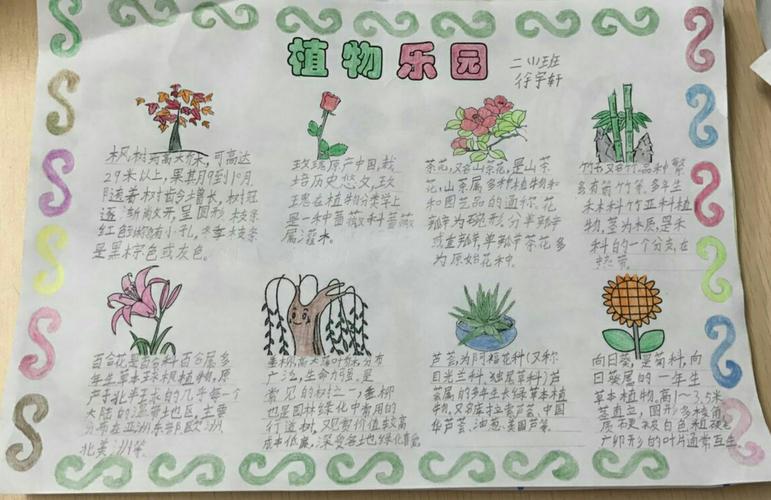 植物乐园
二(1)班
徐宇轩
枫树为高大乔木，可高达
29米以上，果其月9到10月
随着树龄增长，树冠
逐渐敞开，呈圆形枝条
红色 有小孔，冬季枝条
是黑棕色或灰色。
玫瑰原产中国，栽
培历史悠久，玫
瑰在植物分类学上
是一种蔷薇科蔷薇
属灌木。
茶花，又名山茶花，是山茶
花，山茶属多种植物和
和园艺品的通称，花
瓣为碗形，分单瓣
或重瓣，单瓣茶花多
为原始花种。
竹 又名竹，品种繁
多有箭竹等，多年生
禾本科竹亚科植
物，茎为木质，是禾
科的一个分支，在
热带。
百合花是百合科百合属多
年生草本球根植物，原
产于北半球的几乎每一个
大陆的温带地区，主要
分布在亚洲东部欧洲
北美洲等。
垂柳，高大落叶 分布
广泛，生命力强，是
常见的树之一，垂柳
也是园林绿化中常用的
行道树，观赏价值较高
成本低廉，深受各地绿化喜爱
芦荟，为阿福花科(又称
日光兰科、独尾草科)芦
荟属的多年生常绿草本植
物，又名库拉索芦荟、中国
华芦荟、油葱、美国芦荟。
向日葵，是菊科，向
日葵属的一年生
草本植物，高1～3.5米
茎直立，圆形多棱角
质 被白色粗硬毛
广卵形的叶片通常互生